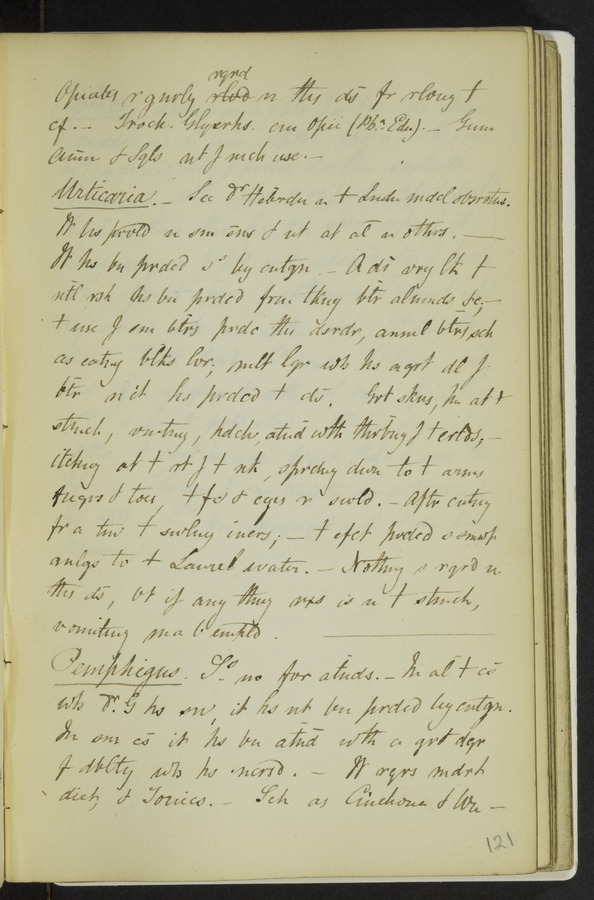 rqrd
Opiates r gnrly rlvd n ths ds fr rlvng t
cf. – Troch. Glycrhs. cm Opii (Ph. Edn). – Gum
& Sqls nt f mch use. –
Urticaria. – See Dr Heberdn n t Lndn mdcl obsrvtns.
It hs n sm sns & nt at al n othrs. –
It hs bn prdcd by cntgn – A ds vry lk t
ntl rsh hs bn prdcd frm tkng btr almnds &c; –
t use f sm btrs prdc ths dsrdr, annml btrs, sch
as eatng blks lvr; mlt lqr wh hs a grt dl f
btr n it hs prdcd t ds. Grt skns, pn at t
stmch, vmtng, hdch, atnd wth thrbng f t crtds; –
itching at t rt f t nk, sprdng dwn to t arms
fngrs & toes, t fc & eyes r swld. – Aftr cntng
fr a tm t swlng incrs; – t efct prdcd s smwt
anlgs to t Laurel water. – Nothng s rqrd n
ths ds, bt if any thng nxs is n t stmch,
vomiting ma b emptd.
Pemphigus. Sx no fvr atnds. – In al t cs
wh Dr. G hs sn, it hs nt bn prdcd by cntgn.
In sm cs it hs bn atnd wth a grt dgr
f dblty wh hs ncrsd. – It rqrs mdrt
diet, & Tonics. – Sch as Cinchona & Wn –
121